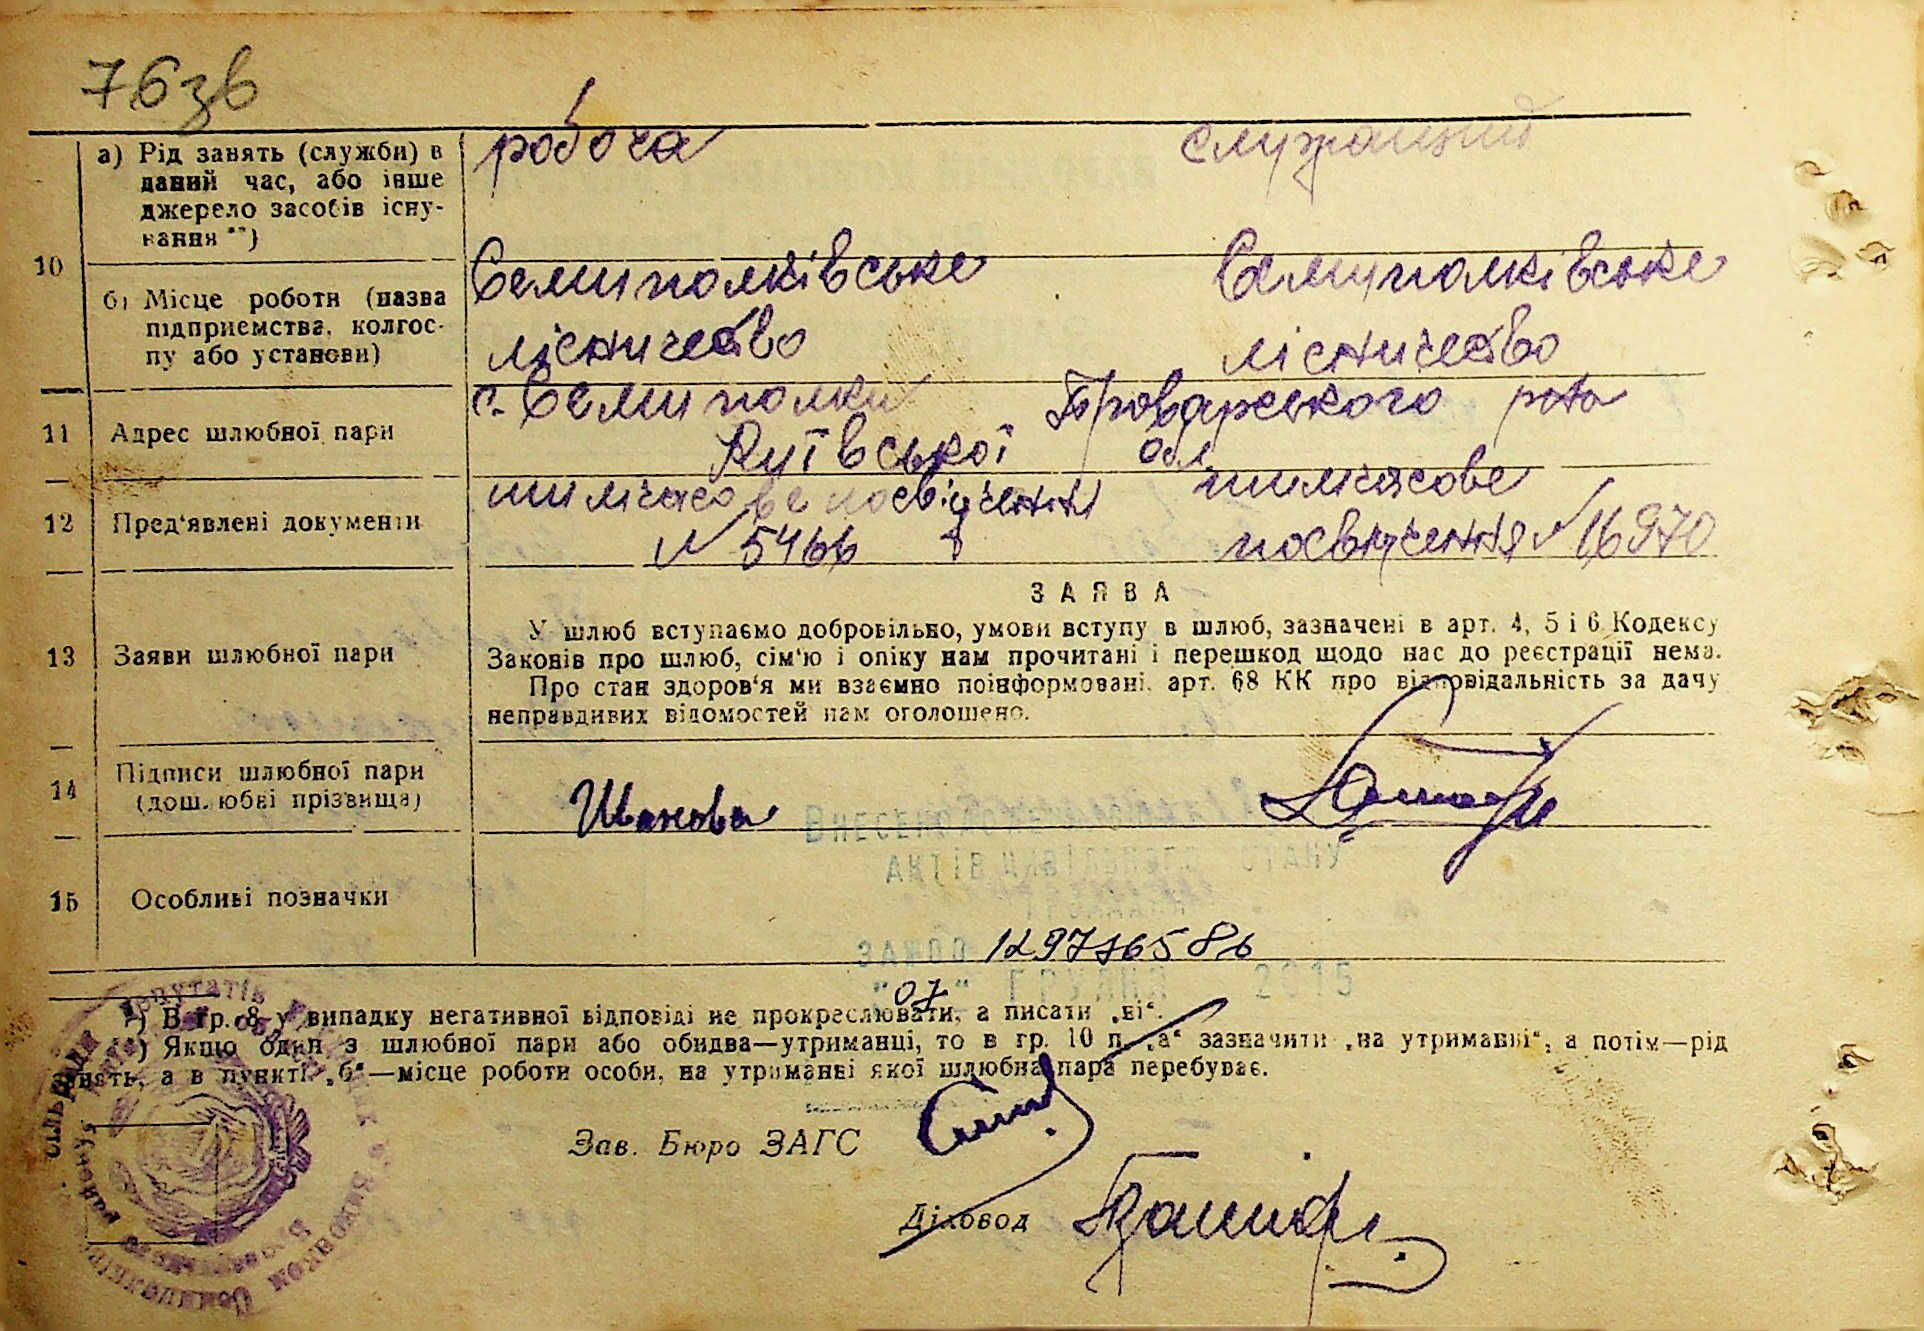 76зв
10
а) Рід занять (служби) в
даний час, або інше
джерело засобів існу-
вання **)
робоча
служащий
б) Місце роботи (назва
підприємства, колгос-
пу або установи)
Семиполківське
лісничество
Семиполківське
лісничество
11 Адрес шлюбної пари
с. Семиполки Броварського р-на
Київської обл.
12 Пред'явлені документи
тимчасове посвідчення
№ 5466
тимчасове
посвідчення № 16970
13 Заяви шлюбної пари
ЗАЯВА
У шлюб вступаємо добровільно, умови вступу в шлюб, зазначені в арт. 4, 5 і 6 Кодексу
Законів про шлюб, сім'ю і опіку нам прочитані і перешкод щодо нас до реєстрації нема.
Про стан здоров'я ми взаємно поінформовані, арт. 68 КК про відповідальність за дачу
неправдивих відомостей нам оголошено.
14 Підписи шлюбної пари
(дошлюбні прізвища)
Иванова
15 Особливі позначки
АКТІВ ЦИВІЛЬНОГО СТАНУ
ГРОМАДЯН
129776586
"07" ГРУДНЯ 2015
*) В гр. 8 у випадку негативної відповіді не прокреслювати, а писати „ні“.
**) Якщо один з шлюбної пари або обидва—утриманці, то в гр. 10 п. „а“ зазначити „на утриманні“, а потім—рід
занять, а в пункті „б“—місце роботи особи, на утриманні якої шлюбна пара перебуває.
Зав. Бюро ЗАГС
Діловод